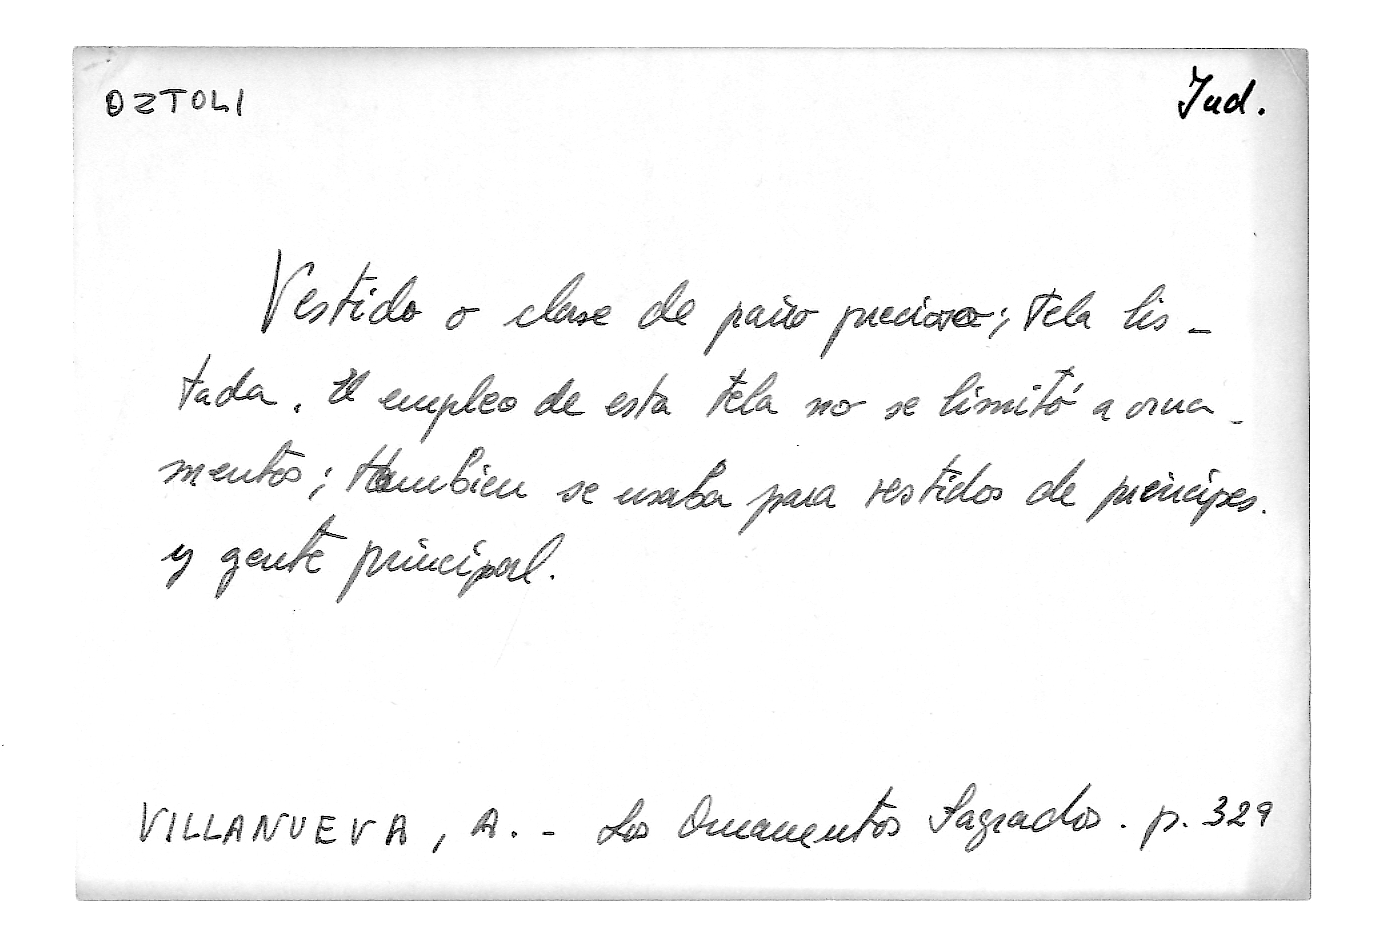 OZTOLI
Jud.
Vestido o clase de paño precioso; tela lis-
tada. El empleo de esta tela no se limitó a orna-
mentos; tambien se usaba para vestidos de principes.
y gente principal.
VILLANUEVA, A. - Los Ornamentos Sagrados. p. 329